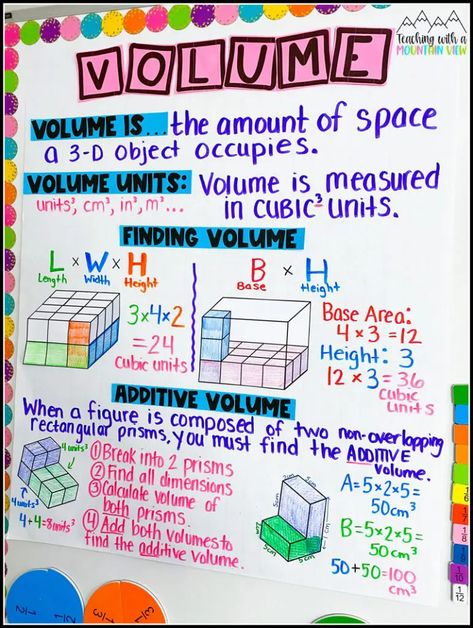 Teaching with a
MOUNTAIN VIEW
VOLUME
VOLUME IS... the amount of space
a 3-D object occupies.
VOLUME UNITS: Volume is measured
units³, cm³, in³, m³... in CUBIC³ units.
FINDING VOLUME
L x W x H
Length Width Height
3x4x2
= 24
cubic units
B x H
Base Height
Base Area:
4 x 3 = 12
Height: 3
12 x 3 = 36
cubic
units
ADDITIVE VOLUME
When a figure is composed of two non-overlapping
rectangular prisms, you must find the ADDITIVE
volume.
4 units³
4 units³
4+4=8units³
① Break into 2 prisms
② Find all dimensions
③ Calculate volume of
both prisms.
④ Add both volumes to
find the additive volume.
5cm
5cm
A=5x2x5=
50cm³
B=5x2x5=
50cm³
50+50=100
cm³
1/10
1/12
1/2
1/2
1/3